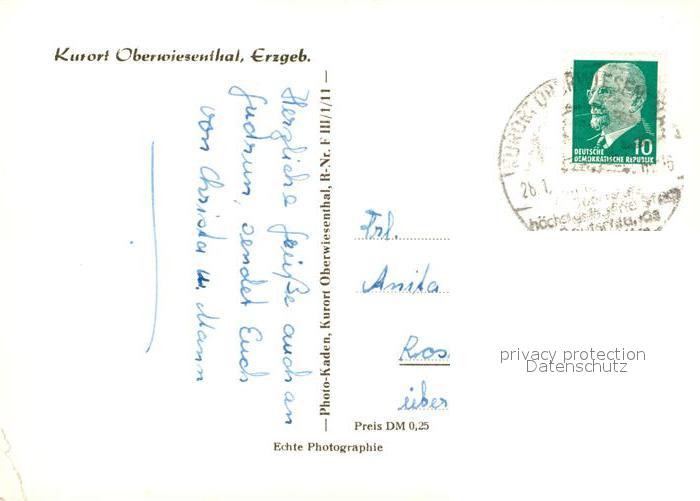 Kurort Oberwiesenthal, Erzgeb.
Herzliche Grüße auch an
Gudrun, sendet Euch
von Christa u. Mann
Photo-Kaden, Kurort Oberwiesenthal, R-Nr. F III/1/11
KURORT OBERWIESEN
28.1.
höchstgelegene
10
DEUTSCHE
DEMOKRATISCHE REPUBLIK
Frl.
Anita
Ros
über
Preis DM 0,25
Echte Photographie
privacy protection
Datenschutz